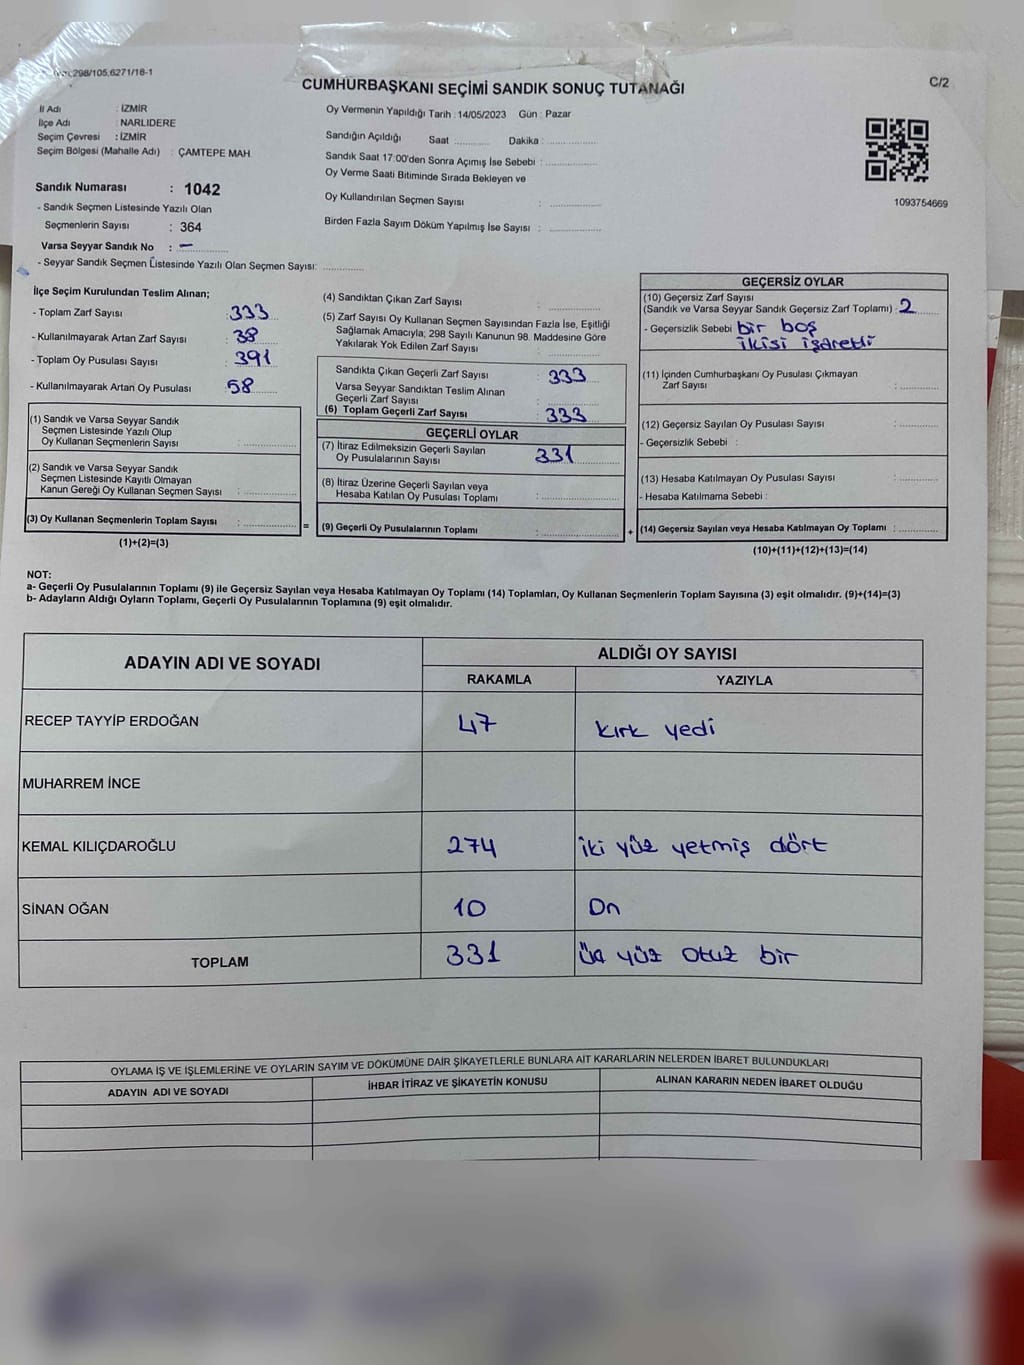 298/105,6271/18-1
CUMHURBAŞKANI SEÇİMİ SANDIK SONUÇ TUTANAĞI
C/2
İl Adı : İZMİR
İlçe Adı : NARLIDERE
Seçim Çevresi : İZMİR
Seçim Bölgesi (Mahalle Adı) : ÇAMTEPE MAH.
Sandık Numarası : 1042
- Sandık Seçmen Listesinde Yazılı Olan
Seçmenlerin Sayısı : 364
Varsa Seyyar Sandık No : -
- Seyyar Sandık Seçmen Listesinde Yazılı Olan Seçmen Sayısı: ............
Oy Vermenin Yapıldığı Tarih : 14/05/2023 Gün : Pazar
Sandığın Açıldığı Saat ............ Dakika : ............
Sandık Saat 17:00'den Sonra Açımış İse Sebebi : ............
Oy Verme Saati Bitiminde Sırada Bekleyen ve
Oy Kullandırılan Seçmen Sayısı : ............
Birden Fazla Sayım Döküm Yapılmış İse Sayısı : ............
1093754669
İlçe Seçim Kurulundan Teslim Alınan;
- Toplam Zarf Sayısı : 333
- Kullanılmayarak Artan Zarf Sayısı : 38
- Toplam Oy Pusulası Sayısı : 391
- Kullanılmayarak Artan Oy Pusulası : 58
(1) Sandık ve Varsa Seyyar Sandık
Seçmen Listesinde Yazılı Olup
Oy Kullanan Seçmenlerin Sayısı : ............
(2) Sandık ve Varsa Seyyar Sandık
Seçmen Listesinde Kayıtlı Olmayan
Kanun Gereği Oy Kullanan Seçmen Sayısı : ............
(3) Oy Kullanan Seçmenlerin Toplam Sayısı : ............ =
(1)+(2)=(3)
(4) Sandıktan Çıkan Zarf Sayısı : ............
(5) Zarf Sayısı Oy Kullanan Seçmen Sayısından Fazla İse, Eşitliği
Sağlamak Amacıyla, 298 Sayılı Kanunun 98. Maddesine Göre
Yakılarak Yok Edilen Zarf Sayısı : ............
Sandıkta Çıkan Geçerli Zarf Sayısı : 333
Varsa Seyyar Sandıktan Teslim Alınan
Geçerli Zarf Sayısı : ............
(6) Toplam Geçerli Zarf Sayısı : 333
GEÇERLİ OYLAR
(7) İtiraz Edilmeksizin Geçerli Sayılan
Oy Pusulalarının Sayısı : 331
(8) İtiraz Üzerine Geçerli Sayılan veya
Hesaba Katılan Oy Pusulası Toplamı : ............
(9) Geçerli Oy Pusulalarının Toplamı : ............ +
GEÇERSİZ OYLAR
(10) Geçersiz Zarf Sayısı
(Sandık ve Varsa Seyyar Sandık Geçersiz Zarf Toplamı) : 2
- Geçersizlik Sebebi : bir boş
ikisi işaretli
(11) İçinden Cumhurbaşkanı Oy Pusulası Çıkmayan
Zarf Sayısı : ............
(12) Geçersiz Sayılan Oy Pusulası Sayısı : ............
- Geçersizlik Sebebi :
(13) Hesaba Katılmayan Oy Pusulası Sayısı : ............
- Hesaba Katılmama Sebebi :
(14) Geçersiz Sayılan veya Hesaba Katılmayan Oy Toplamı : ............
(10)+(11)+(12)+(13)=(14)
NOT:
a- Geçerli Oy Pusulalarının Toplamı (9) ile Geçersiz Sayılan veya Hesaba Katılmayan Oy Toplamı (14) Toplamları, Oy Kullanan Seçmenlerin Toplam Sayısına (3) eşit olmalıdır. (9)+(14)=(3)
b- Adayların Aldığı Oyların Toplamı, Geçerli Oy Pusulalarının Toplamına (9) eşit olmalıdır.
ADAYIN ADI VE SOYADI
ALDIĞI OY SAYISI
RAKAMLA YAZIYLA
RECEP TAYYİP ERDOĞAN 47 kırk yedi
MUHARREM İNCE
KEMAL KILIÇDAROĞLU 274 iki yüz yetmiş dört
SİNAN OĞAN 10 On
TOPLAM 331 üç yüz otuz bir
OYLAMA İŞ VE İŞLEMLERİNE VE OYLARIN SAYIM VE DÖKÜMÜNE DAİR ŞİKAYETLERLE BUNLARA AİT KARARLARIN NELERDEN İBARET BULUNDUKLARI
ADAYIN ADI VE SOYADI İHBAR İTİRAZ VE ŞİKAYETİN KONUSU ALINAN KARARIN NEDEN İBARET OLDUĞU